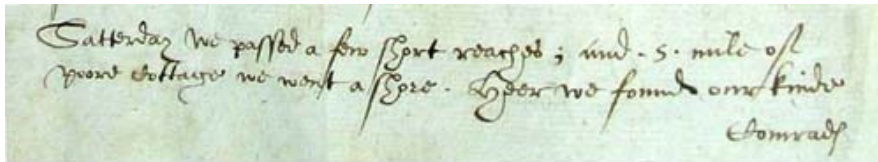 Satterday we passed a few short reaches ; and . 5 . mile of
poore Cottage we went a shore . Heer we found our kinde
Comrads